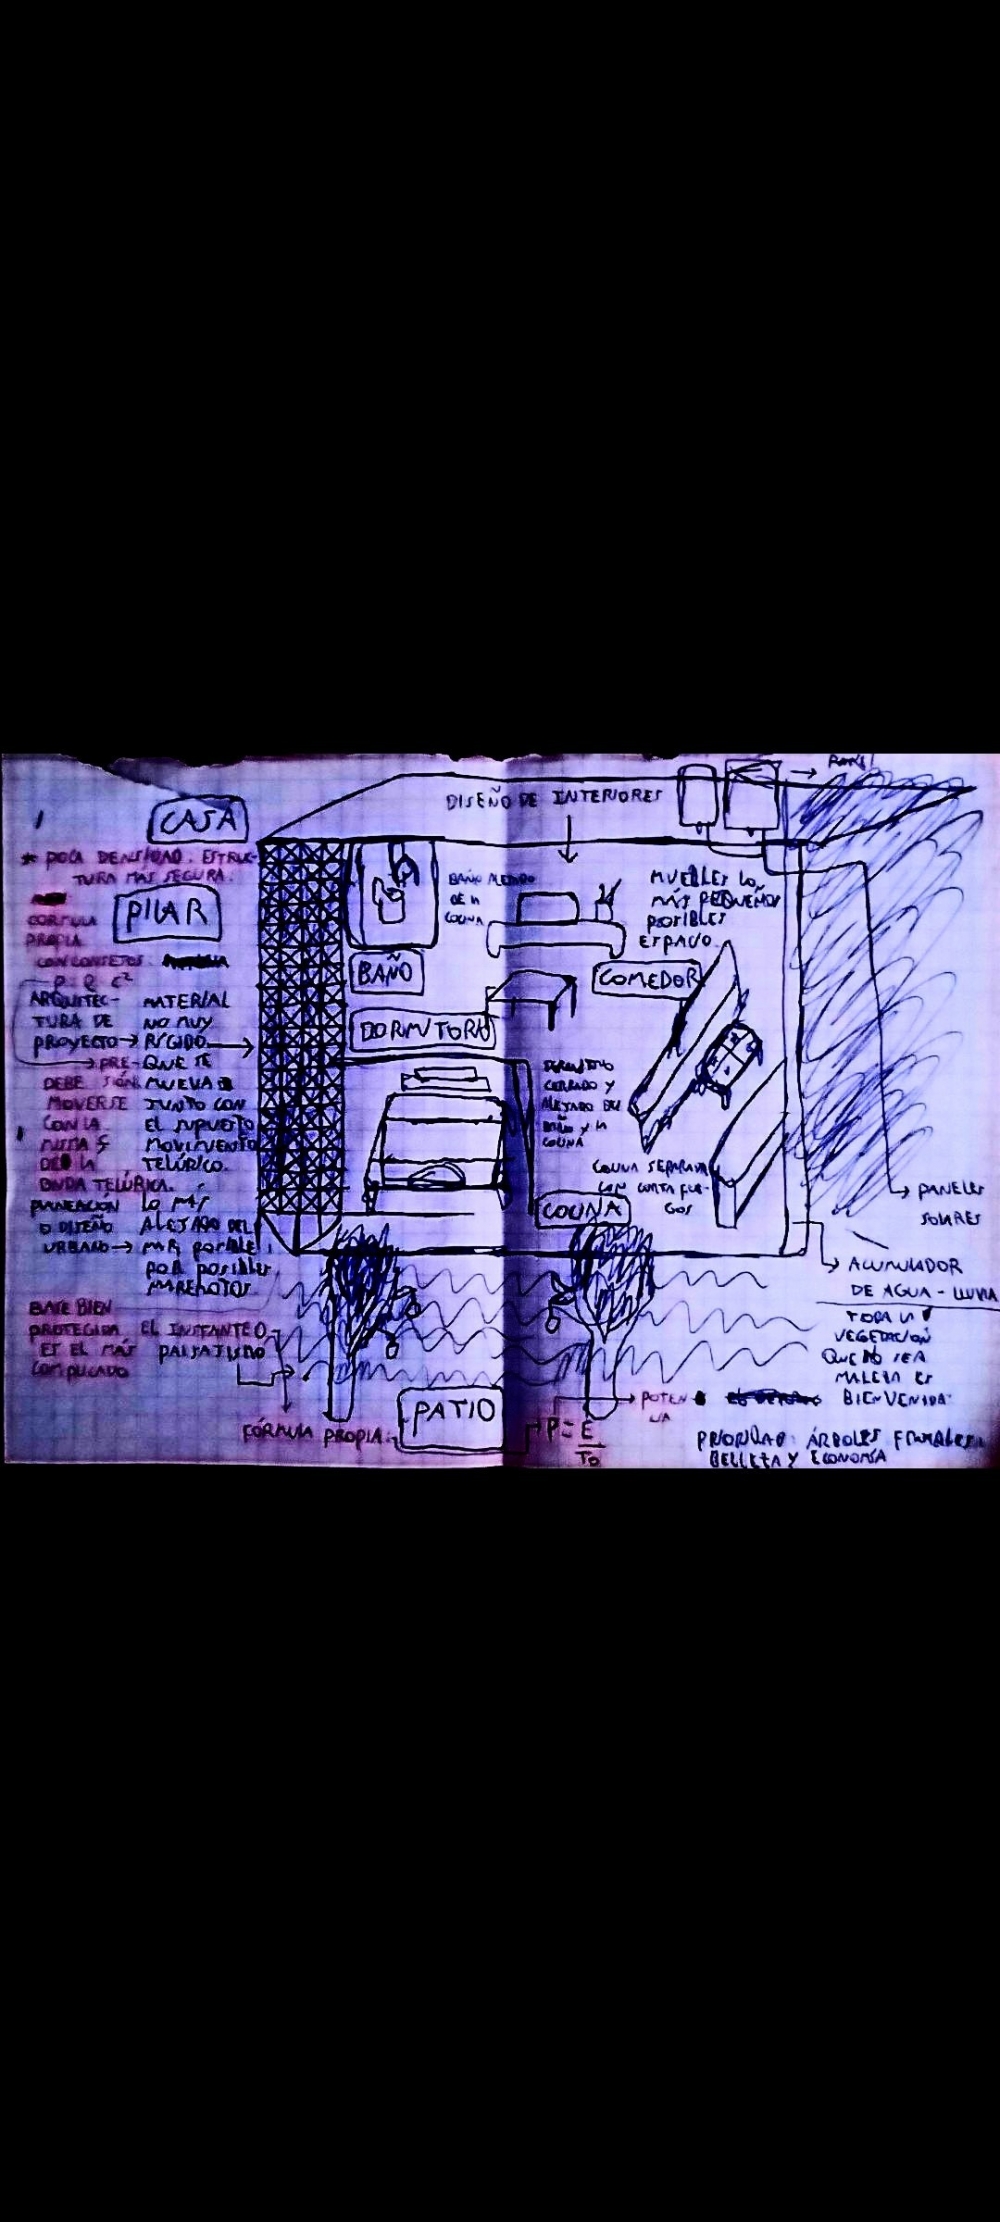 CASA
* POCA DENSIDAD. ESTRUC-
TURA MÁS SEGURA.
PILAR
PROPIA
P = Q c²
ARQUITEC-
TURA DE
PROYECTO →
MATERIAL
NO MUY
RÍGIDO
QUE SE
MUEVA
JUNTO CON
EL SUPUESTO
MOVIMIENTO
TELÚRICO.
PRE-
SIÓN
DEBE
MOVERSE
CON LA
MISMA
DE LA
ONDA TELÚRICA.
PLANEACIÓN
O DISEÑO
URBANO →
LO MÁS
ALEJADO DEL
MAR POSIBLE,
POR POSIBLES
MAREMOTOS
BASE BIEN
PROTEGIDA
ES EL MÁS
COMPLICADO
EL INSTANTE 0
PAISAJISMO
DISEÑO DE INTERIORES
BAÑO ALEJADO
DE LA
COCINA
MUEBLES LO
MÁS PEQUEÑOS
POSIBLES
ESPACIO.
BAÑO
COMEDOR
DORMITORIO
CERRADO Y
ALEJADO DEL
BAÑO Y LA
COCINA
COCINA SEPARADA
CON CORTA FUE-
GOS
COCINA
PANEL
PANELES
SOLARES
ACUMULADOR
DE AGUA - LLUVIA
TODA LA
VEGETACIÓN
QUE NO SEA
MALEZA ES
BIENVENIDA
PATIO
FÓRMULA PROPIA:
P = E
T0
POTEN
CIA
PRIORIDAD: ÁRBOLES FRUTALES.
BELLEZA Y ECONOMÍA